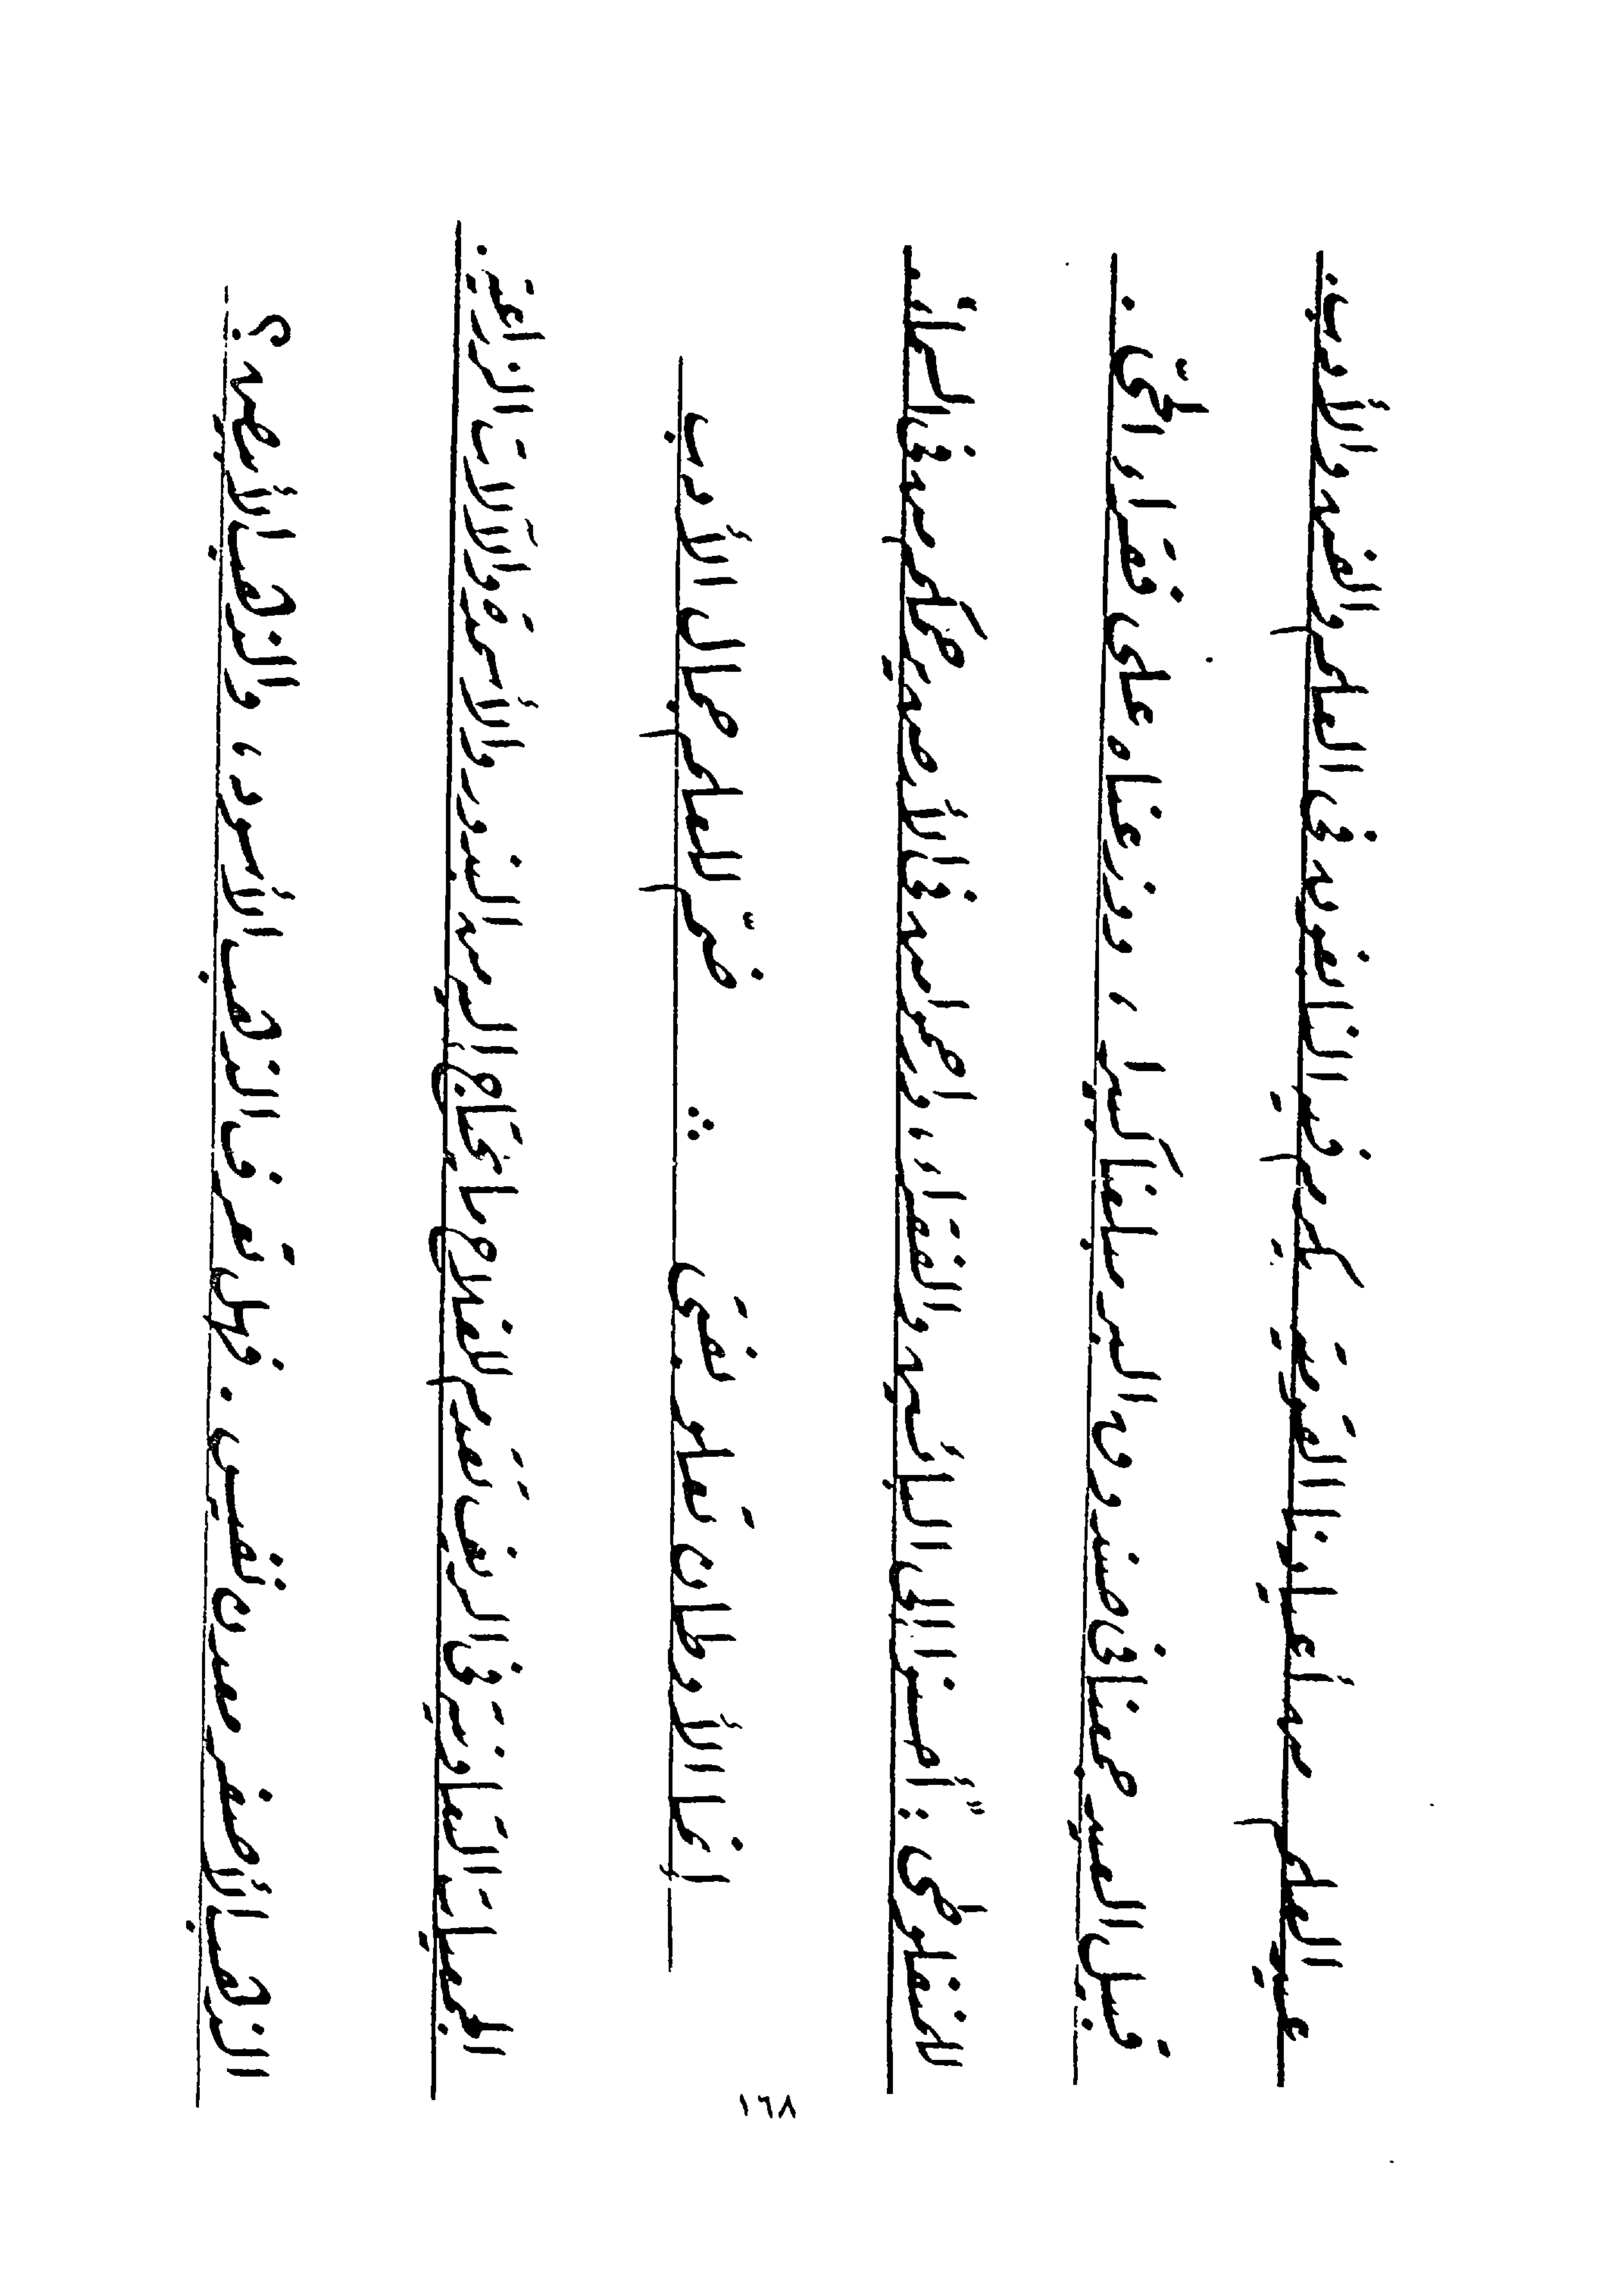 عيد العلم من أعيادنا القومية يكرم فيه النابغون في العلم والفن والأدب.
قبيل العيد جمعنا في صندوق البر مبلغا كبيرا ، ووزعناه على فقراء الحيّ .
المنفلوطي : أحسنوا إلى البائسين والفقراء ، وارحموا من في الأرض يرحمكم من في السماء.
إنما الأوطان تعلو بفتى ∴ ضمّ للعلم جمال الأدب
الجمعيات التعاونية في الريف تقدم للفلاح ما يحتاج إليه من البذور والأسمدة والآلات الزراعية.
الذهب الأصفر معدن نفيس . فهل تعرف الذهب الأسود ، والذهب الأبيض ؟
١٦٨